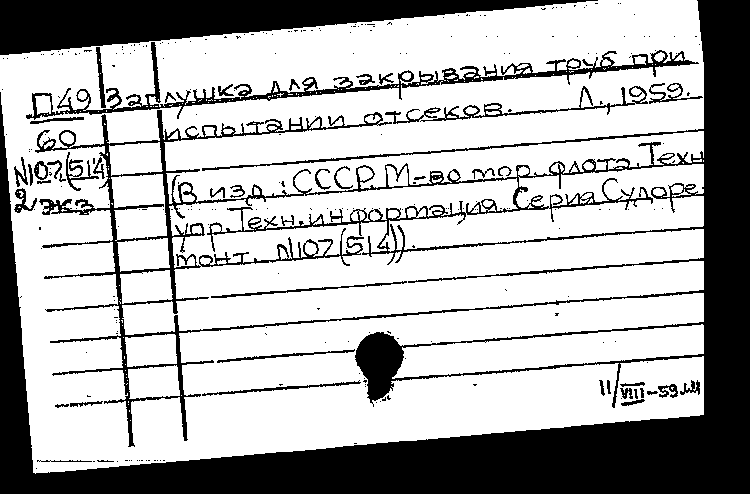 П49 Заглушка для закрывания труб при
60 испытании отсеков. Л., 1959.
N107(514)
2 экз
(В изд.: СССР. М-во мор. флота. Техн
упр. Техн. информация. Серия Судоре-
монт. N107(514)).
11/VIII-59